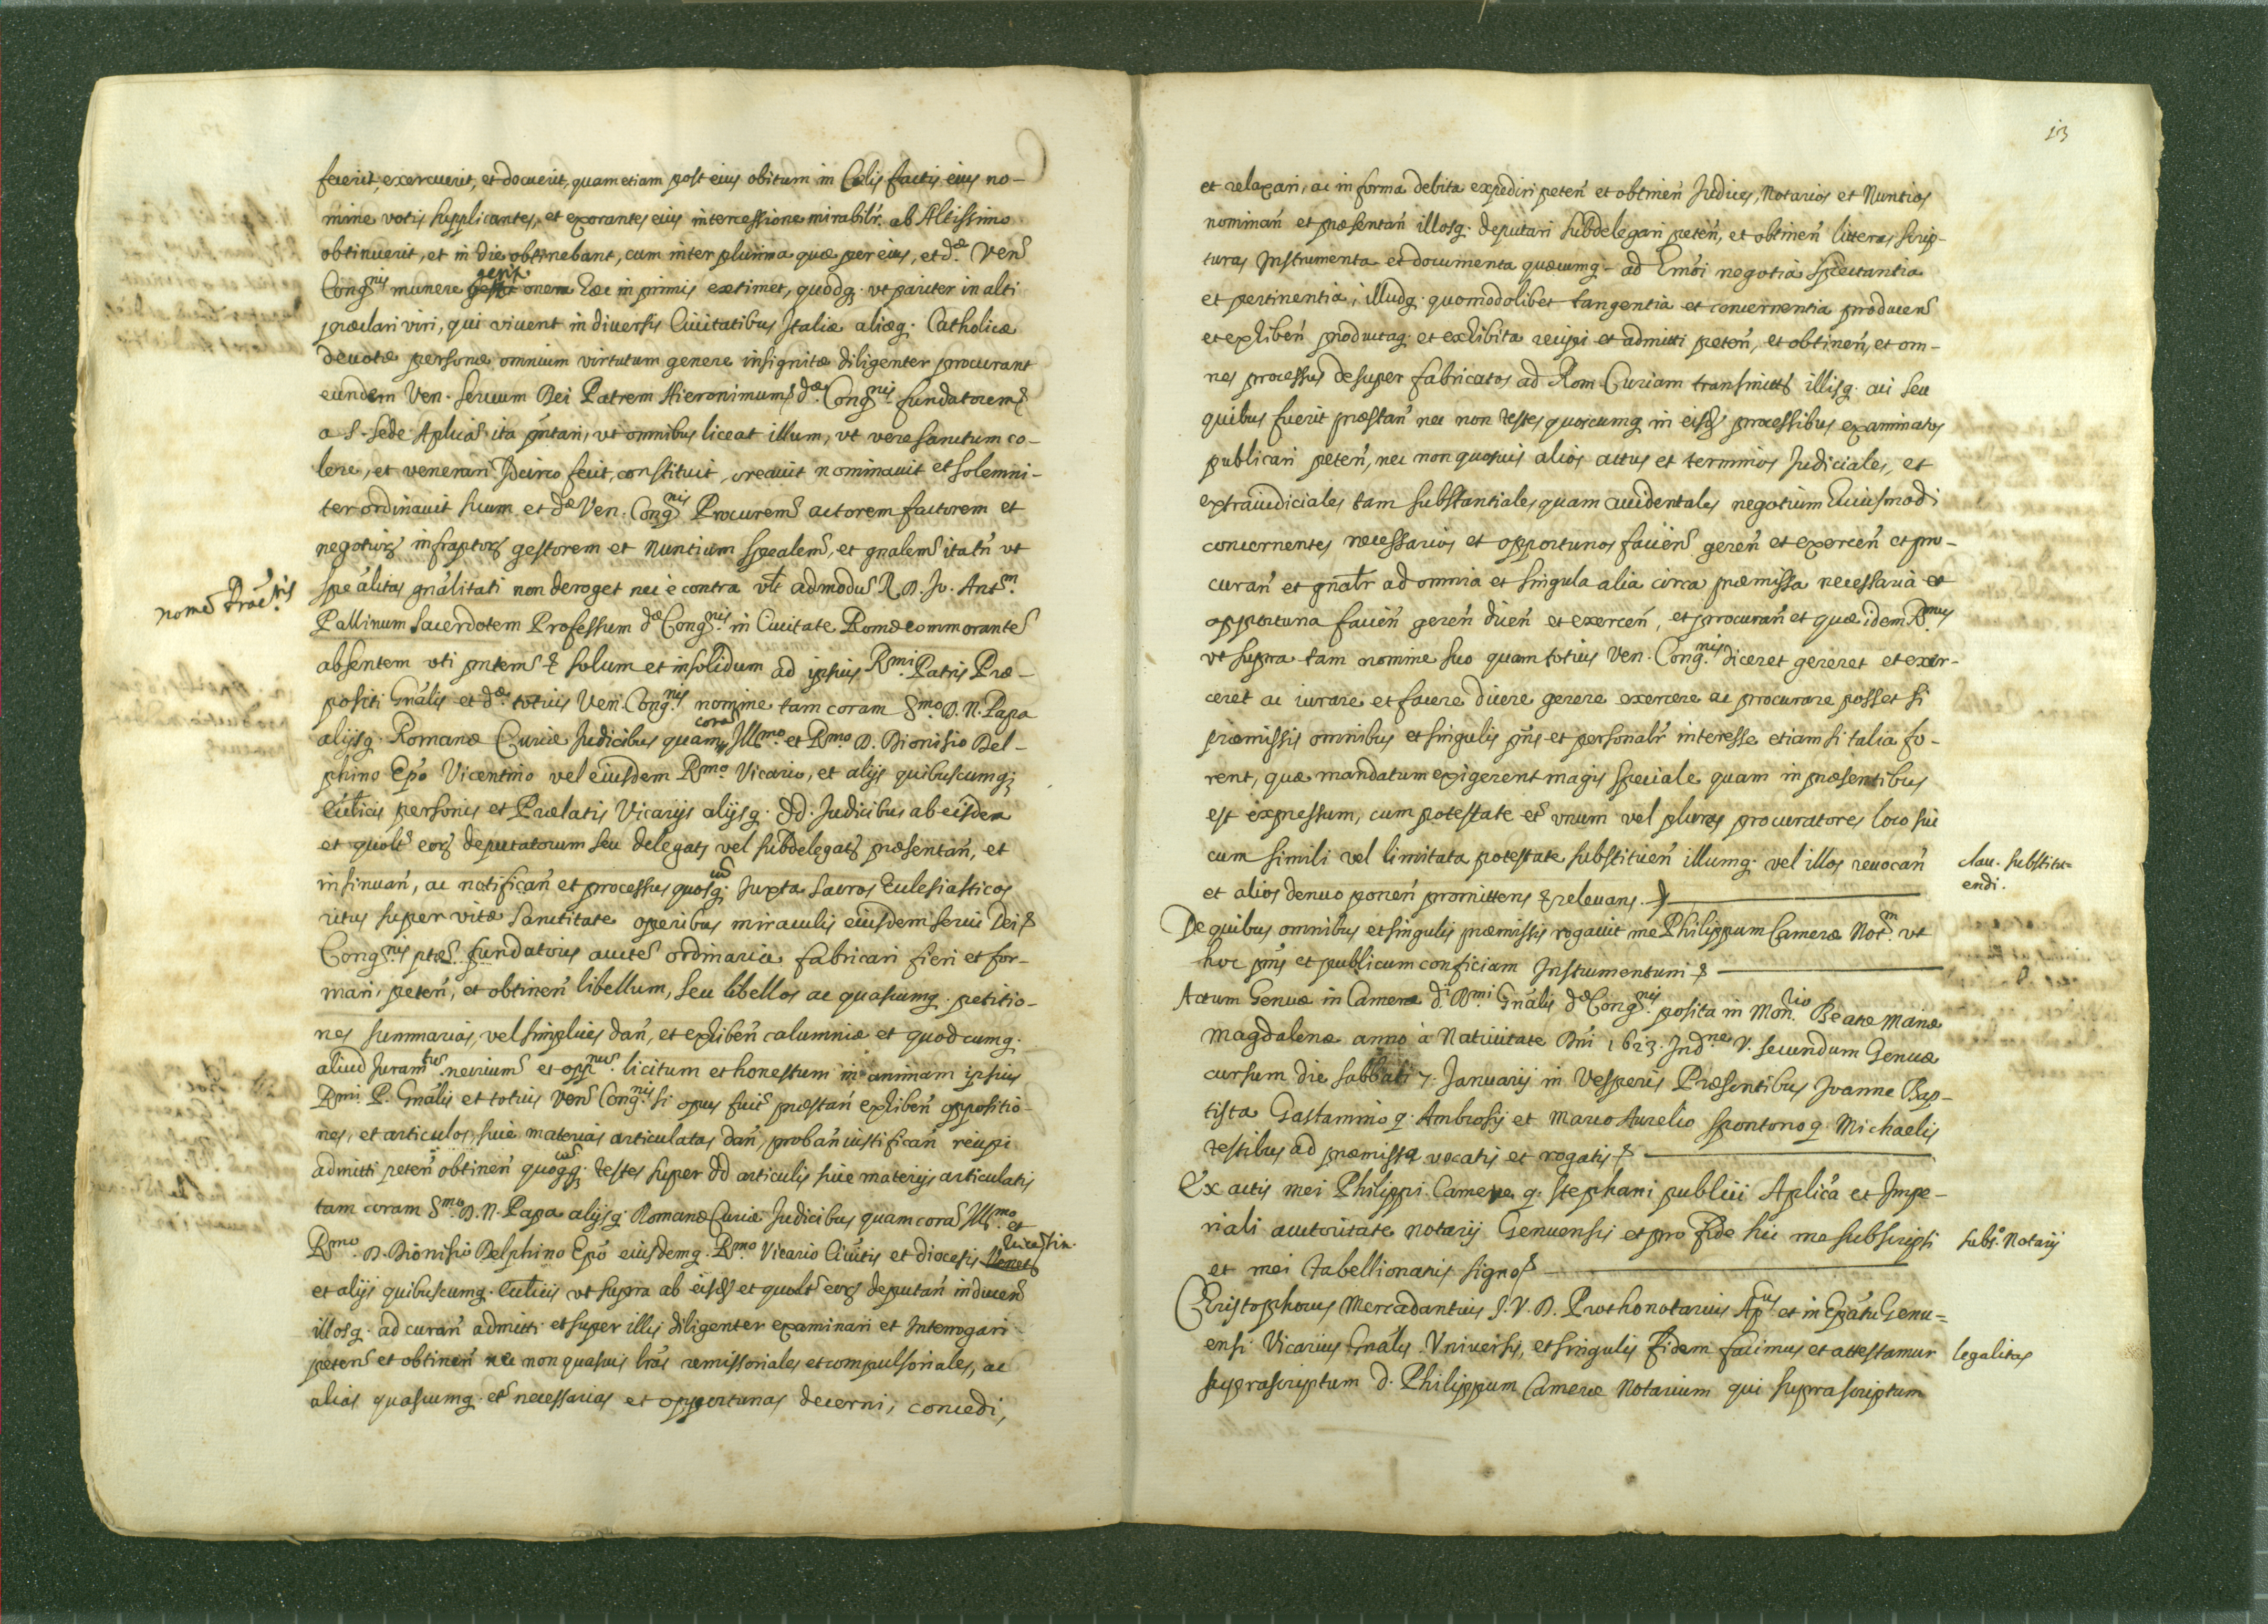 fecerit, exercuerit, et docuerit, quam etiam post eius obitum in Celis factis eius no-
mine votis supplicantes, et exorantes eius intercessione mirabilr. ab Altissimo
obtinuerit, et in die obtinebant, cum inter plurima quæ per eius, et dæ Ven
Congnis munere gessit onera hæc in primis extimet, quodq. ut pariter in alti
præclari viri, qui vivent in diversis Civitatibus Italiæ aliæq. Catholicæ
devotæ personæ omnium virtutum genere insignitæ diligenter procurant
eundem Ven. servum Dei Patrem Hieronimum dæ Congnis fundatorem
a S. sede Aplica ita pntari, ut omnibus liceat illum, ut vere sanctum co-
lere, et venerari Idcirco fecit, constituit, creavit nominavit et solemni-
ter ordinavit suum et dæ Ven. Congnis Procurem actorem factorem et
negotiorum infraptor gestorem et Nuntium spealem, et gnalem itatn ut
nome Procris
spealitas gnalitati non deroget nec è contra vlt admodu R. D. Jo. Antm
Pallinum sacerdotem Professum dæ Congnis in Civitate Romæ commorante
absentem uti pntem & solum et insolidum ad ipsius Rmi Patris Præ-
positi Gnalis et dæ totius Ven. Congnis nomine tam coram Smo D. N. Papa
alijsq. Romanæ Curiæ Judicibus quam cora Illmo et Rmo D. Dionisio Del-
phino Epo Vicentino vel eiusdem Rmo Vicario, et alijs quibuscumq;
Ecclicis personis et Prælatis Vicarijs alijsq. dd. Judicibus ab eisdem
et quolt eor deputatorum seu delegator vel subdelegator præsentan, et
insinuan, ac notifican et processus quoscuq. Juxta sacros Ecclesiasticos
ritus super vitæ sanctitate operibus miraculis eiusdem servi Dei &
Congnis ptæ fundatoris aucte ordinaria fabricari fieri et for-
mari, peten, et obtinen libellum, seu libellos ac quascumq. petitio-
nes summarias, vel simplices dan, et exhiben calumniæ et quodcumq.
aliud Juramtum necrium et oppnum licitum et honestum in animam ipsius
Rmi P. Gnalis et totius Ven Congnis si opus fuit præstan exhiben oppositio-
nes, et articulos, sive materias articulatas dan, proban iustifican recipi
admitti peten obtinen quoscuq; testes super dd articulis sive materijs articulatis
tam coram Smo D. N. Papa alijsq. Romanæ Curiæ Judicibus quam cora Illmo et
Rmo D. Dionisio Delphino Epo eiusdemq. Rmo Vicario Civitis et diocesis Vicentin.
et alijs quibuscumq. Ecclicis ut supra ab eisd et quolt eor deputan inducen
illosq. ad curan admitti et super illis diligenter examinari et Interrogari
peten et obtinen nec non quasvis lras remissoriales et compulsoriales, ac
alias quascumq. et necessarias et opportunas decerni, concedi,
13
et relaxari, ac in forma debita expediri peten et obtinen Judices, Notarios et Nuntios
nominan et præsentan illosq. deputari subdelegari peten, et obtinen litteras scrip-
turas Instrumenta et documenta quæcumq. ad hmoi negotia spectantia
et pertinentia, illudq. quomodolibet tangentia et concernentia producen
et exhiben productaq. et exhibita recipi et admitti peten, et obtinen, et om-
nes processus desuper fabricatos ad Rom. Curiam transmitt illisq. cui seu
quibus fuerit præstan nec non testes quoscumq in eisd processibus examinatos
publicari peten, nec non quosvis alios actus et terminos Judiciales, et
extraiudiciales tam substantiales quam accidentales negotium huiusmodi
concernentes necessarios et opportunos facien geren et exercen et pro-
curan et gnalr ad omnia et singula alia circa præmissa necessaria et
opportuna facien geren dicen et exercen, et procuran et quæ idem Rmus
ut supra tam nomine suo quam totius Ven. Congnis diceret gereret et exer-
ceret ac iurare et facere dicere gerere exercere ac procurare posset si
præmissis omnibus et singulis pns et personalr interesse etiam si talia fo-
rent, quæ mandatum exigerent magis speciale quam in præsentibus
est expressum, cum potestate et unum vel plures procuratores loco sui
cum simili vel limitata potestate substituen illumq. vel illos revocan
clau. substitu-
endi.
et alios denuo ponen promittens & relevans.
De quibus omnibus et singulis præmissis rogavit me Philippum Cameræ Notm ut
hoc pns et publicum conficiam Instrumentum &
Actum Genuæ in Camera di Rmi Gnalis dæ Congnis posita in Monrio Beatæ Mariæ
Magdalenæ anno à Nativitate Dni 1623. Indne V. secundum Genuæ
cursum die sabbati 7. Januarij in Vesperis Præsentibus Joanne Bap-
tista Gastamino q. Ambrosij et Marco Aurelio Spontono q. Michaelis
testibus ad præmissa vocatis et rogatis &
Ex actis mei Philippi Cameræ q. Stephani publici Aplica et Impe-
riali auctoritate notarij Genuensis et pro fide hic me subscripsi
subs. Notarij
et mei Tabellionatis signo &
Christophorus Mercadantius J. V. D. Prothonotarius Apcus et in Epatu Genu=
ensi Vicarius Gnalis. Universis, et singulis fidem facimus et attestamur
legalitas
suprascriptum D. Philippum Cameræ Notarium qui suprascriptum